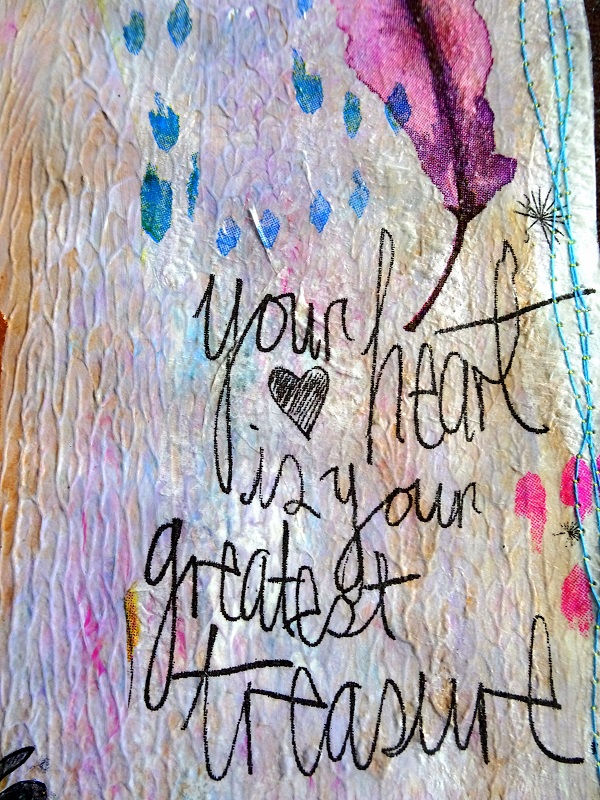 your heart
is your
greatest
treasure